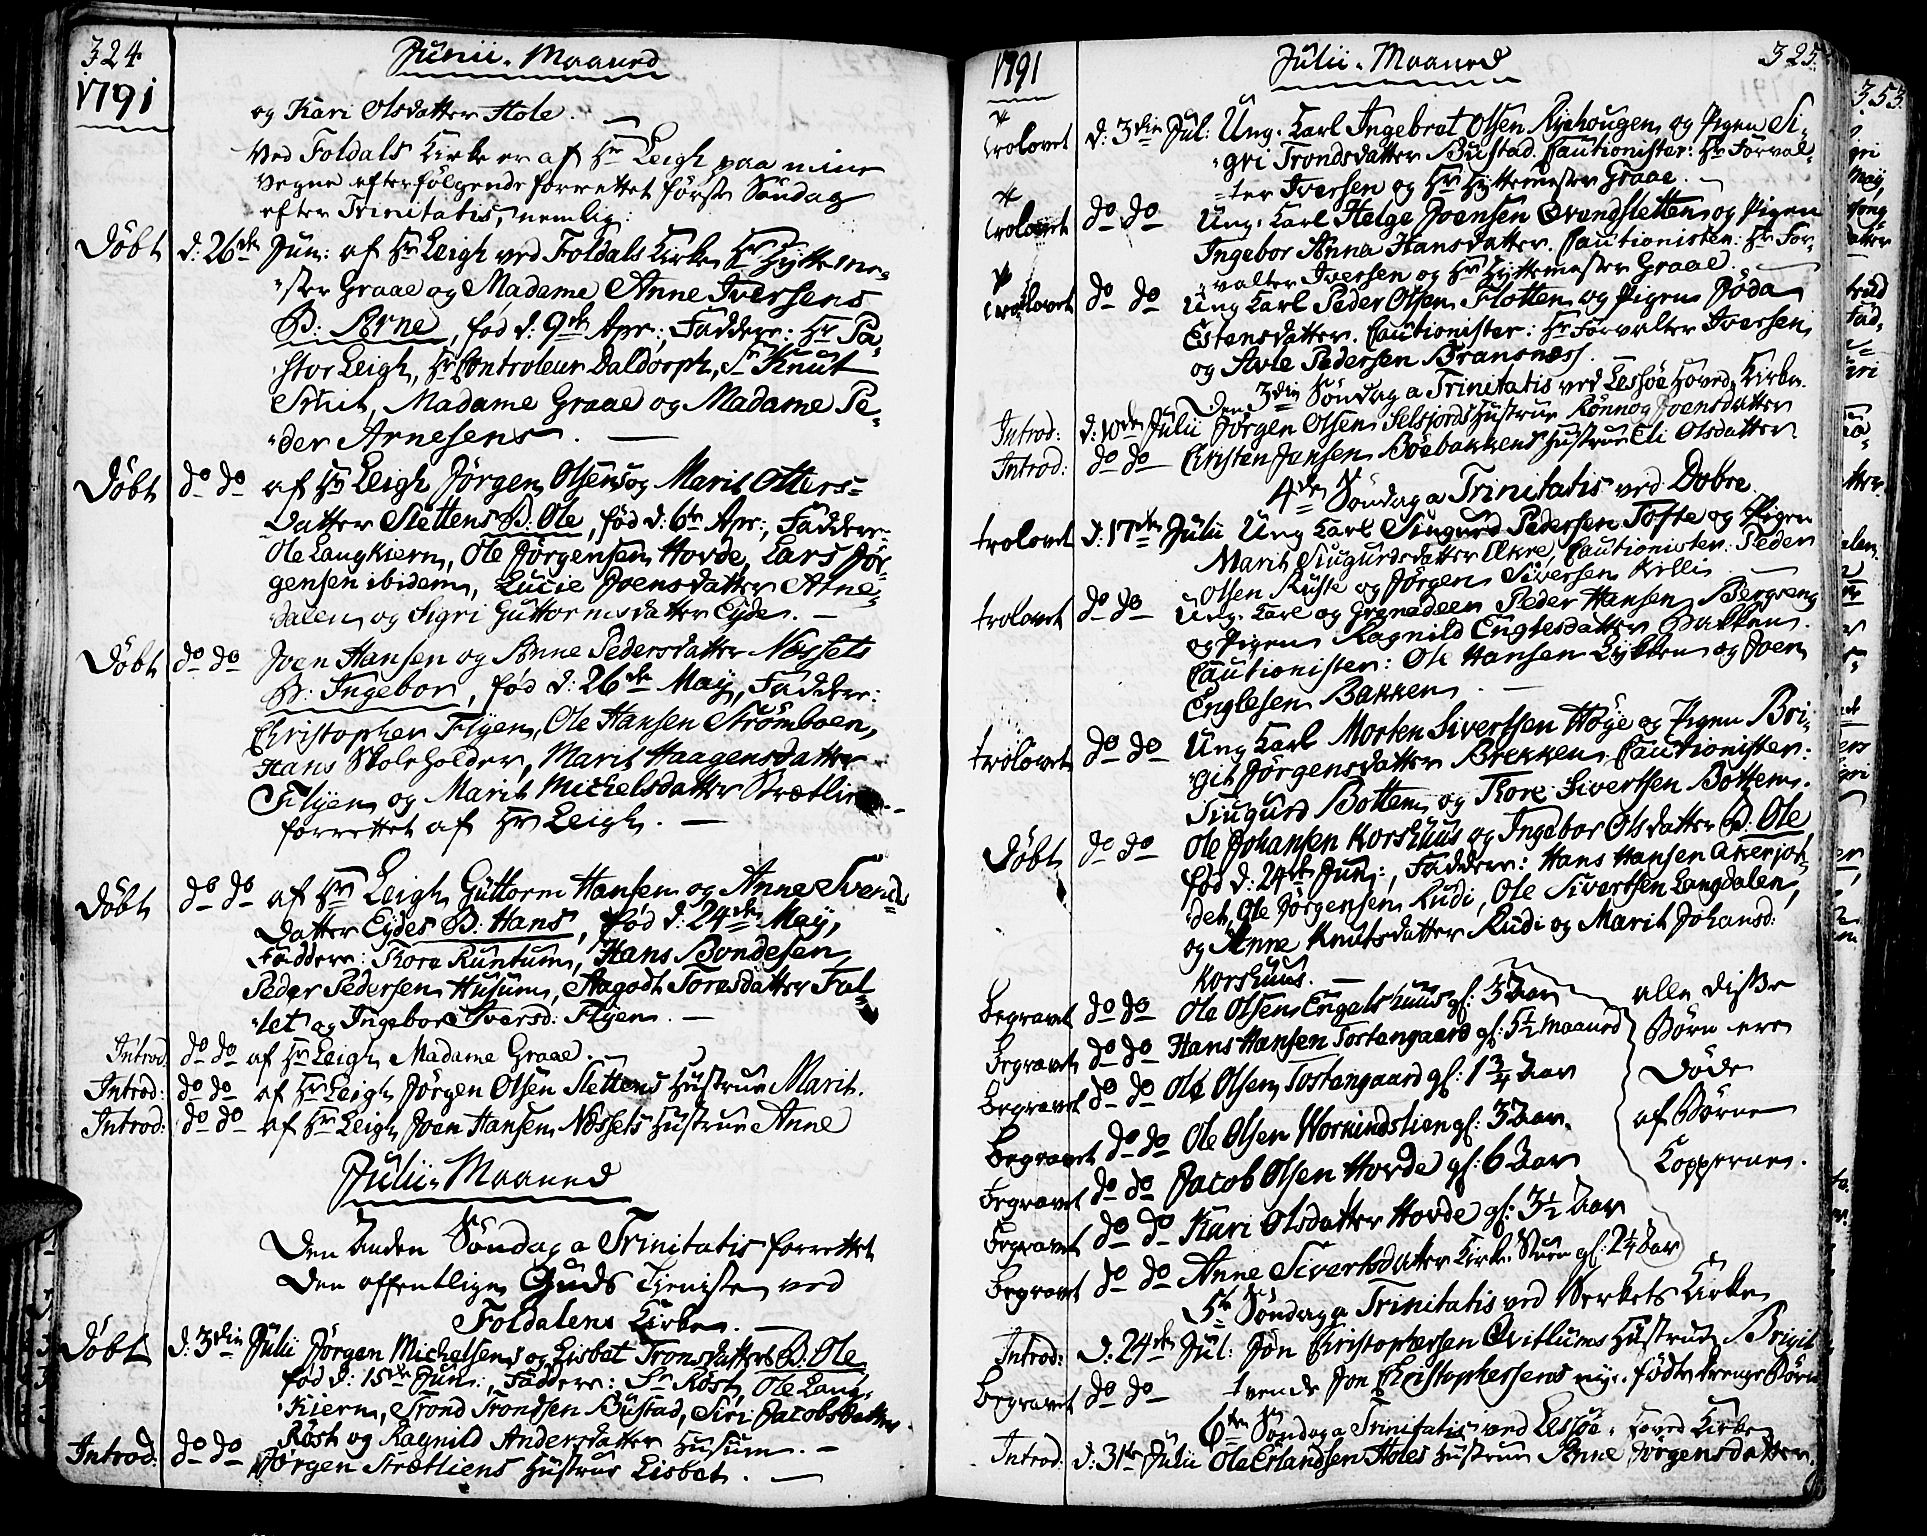 324
1791
Junii. Maaned
og Kari Olsdatter Hole.
Ved Foldals Kirke er af Hr Leigh paa mine
Vegne efterfølgende forrettet første Søndag
efter Trinitatis, nemlig:
Døbt d: 26de Jun: af Hr Leigh ved Foldals Kirke Hr Hytteme-
ster Graae og Madame Anne Iversens
B: Arne, fød d: 9de Apr:, Faddere: Hr Pa-
stor Leigh, Hr Controleur Daldorph, Sr Knut
Madame Graae og Madame Pe-
der Arnesens.
Døbt do do af Hr Leigh Jørgen Olsens og Marit Otters-
datter Slettens B: Ole, fød d: 6te Apr:, Faddere
Ole Langkiern, Ole Jørgensen Hovde, Lars Jør-
gensen ibidem, Lucie Joensdatter Atne-
dalen og Sigri Guttormsdatter Eyde.
Døbt do do Joen Hansen og Anne Pedersdatter Nessets
B: Ingebor, fød d: 26de May, Faddere:
Christopher Flyen, Ole Hansen Strømboen,
Hans Skoleholder, Marit Haagensdatter
Flyen og Marit Michelsdatter
forrettet af Hr Leigh.
Døbt do do af Hr Leigh Guttorm Hansen og Anne Svends-
datter Eydes B: Hans, fød d: 24de May,
Faddere: Thore Runtum, Hans Bondesen
Peder Pedersen Husum, Aagodt Toresdatter Fal-
let og Ingebor Iversd: Flyen.
Introd: do do af Hr Leigh Madame Graae.
Introd: do do af Hr Leigh Jørgen Olsen Slettens Hustrue Marit.
Introd: do do af Hr Leigh Joen Hansen Nessets Hustrue Anne
Julii-Maaned
Den Anden Søndag a Trinitatis forrettet
den offentlige Guds Tjeniste ved
Foldalens Kirke.
Døbt d: 3die Julii Jørgen Michelsens og Lisbet Tronsdatters B: Ole
fød d: 15de Jun:, Faddere: Sr Røst, Ole Lang-
kiern, Trond Trondsen Bustad, Siri Jacobsdatter
Røst og Ragnild Andersdatter Husum.
Introd: do do Jørgen Strætliens Hustrue Lisbet.
1791
Julii. Maaned
325
trolovet d: 3die Jul: Ung. Karl Ingebrat Olsen Ryehougen og Pigen Si-
gri Trondsdatter Bustad. Cautionister: Hr Forval-
ter Iversen og Hr Hyttemester Graae.
trolovet do do Ung. Karl Helge Joensen Evensletten og Pigen
Ingebor Anna Hansdatter. Cautionister: Hr For-
valter Iversen og Hr Hyttemester Graae.
trolovet do do Ung Karl Peder Olsen Flotten og Pigen Jøda
Estensdatter. Cautionister: Hr Forvalter Iversen
og Avle Pedersen Bransness.
Den 3die Søndag a Trinitatis ved Lessøe Hoved Kirke.
Introd: d: 10de Julii Jørgen Olsen Selsjords Hustrue Rønnog Joensdatter
Introd: do do Christen Jansen Bøebakkens Hustrue Eli Olsdatter.
4de Søndag a Trinitatis ved Dovre
trolovet d: 17de Julii Ung Karl Siugurd Pedersen Tofte og Pigen
Marit Siugurdsdatter Ekre, Cautionister: Peder
Olsen Ruste og Jørgen Siversen Killi.
trolovet do do Ung. Karl og Grenadeer Peder Hansen Bergseng
og Pigen Ragnild Englesdatter Bakken.
Cautionister: Ole Hansen Lykken og Joen
Englesen Bakken.
trolovet do do Ung Karl Morten Sivertsen Høye og Pigen Bri-
git Jørgensdatter Brekken. Cautionister:
Siugurd Bottem og Thore Sivertsen Bottem.
Døbt do do Ole Johansen Korshuus og Ingebor Olsdatter B: Ole,
fød d: 24de Jun:, Faddere: Hans Hansen Akerjor-
det, Ole Jørgensen Rudi, Ole Sivertsen Langdalen,
og Anne Knutsdatter Rudi og Marit Johansd:
Korshuus.
Begravet do do Ole Olsen Engelshuus gl: 3 Aar
Begravet do do Hans Hansen Tostangaard gl: 5½ Maaned
Begravet do do Ole Olsen Tostangaard gl: 1¾ Aar
Begravet do do Ole Olsen Wornindslien gl: 3 Aar.
Begravet do do Jacob Olsen Hovde gl: 6 Aar
Begravet do do Kari Olsdatter Hovde gl: 3½ Aar
Begravet do do Anne Sivertsdatter Kirke Stuen gl: 2¼ Aar
alle disse
Børn ere
døde
af Børne
Kopperne.
5te Søndag a Trinitatis ved Verkets Kirke
Introd: d: 24de Jul: Jon Christophersen Hustrue Brigit
Begravet do do tvende Jon Christophersens nye-fødte drenge Børn
6te Søndag a Trinitatis ved Lessøe-Hoved Kirke
Introd: d: 31te Julii Ole Erlandsen Holes Hustrue Anne Jørgensdatter.
353